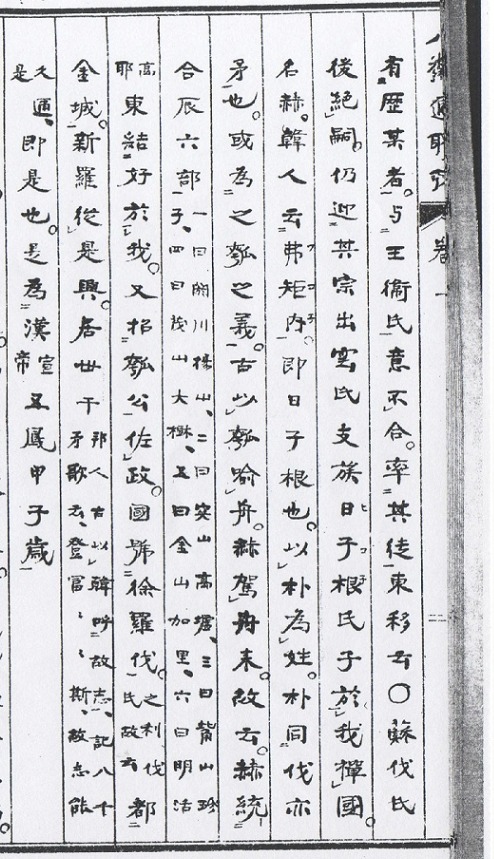 卷一
有歷某者。与王衞氏意不合。率其徒東移云〇蘇伐氏
後絶嗣。仍迎其宗出雲氏支族日子根氏子於我禅國。
名赫。韓人云弗矩内。即日子根也。以朴為姓。朴同伐亦
矛也。或為之瓠之義。古以瓠喻舟。赫駕舟来。故云。赫統
合辰六部一曰閼川楊山、二曰突山高墟、三曰觜山珍子、四曰茂山大樹、五曰金山加里、六曰明活
高耶東結好於我。又招瓠公佐政。國號徐羅伐。之利伐氏故云都
金城。新羅從是興。居世干邦人古以韓呼故志、記八千矛歌云、登富、、斯、故志能
久是邇、即是也。是為漢宣帝五鳳甲子歳